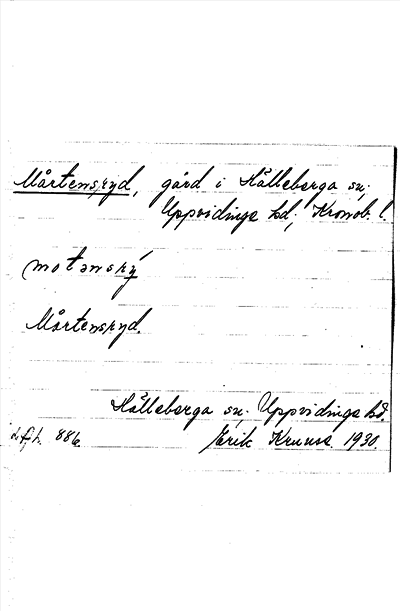 Mårtensryd, gård i Hälleberga sn;
Uppvidinge hd; Kronob. l.
motənsrý
Mårtensryd.
Hälleberga sn; Uppvidinge hd.
Erik Kruuse 1930.
886.